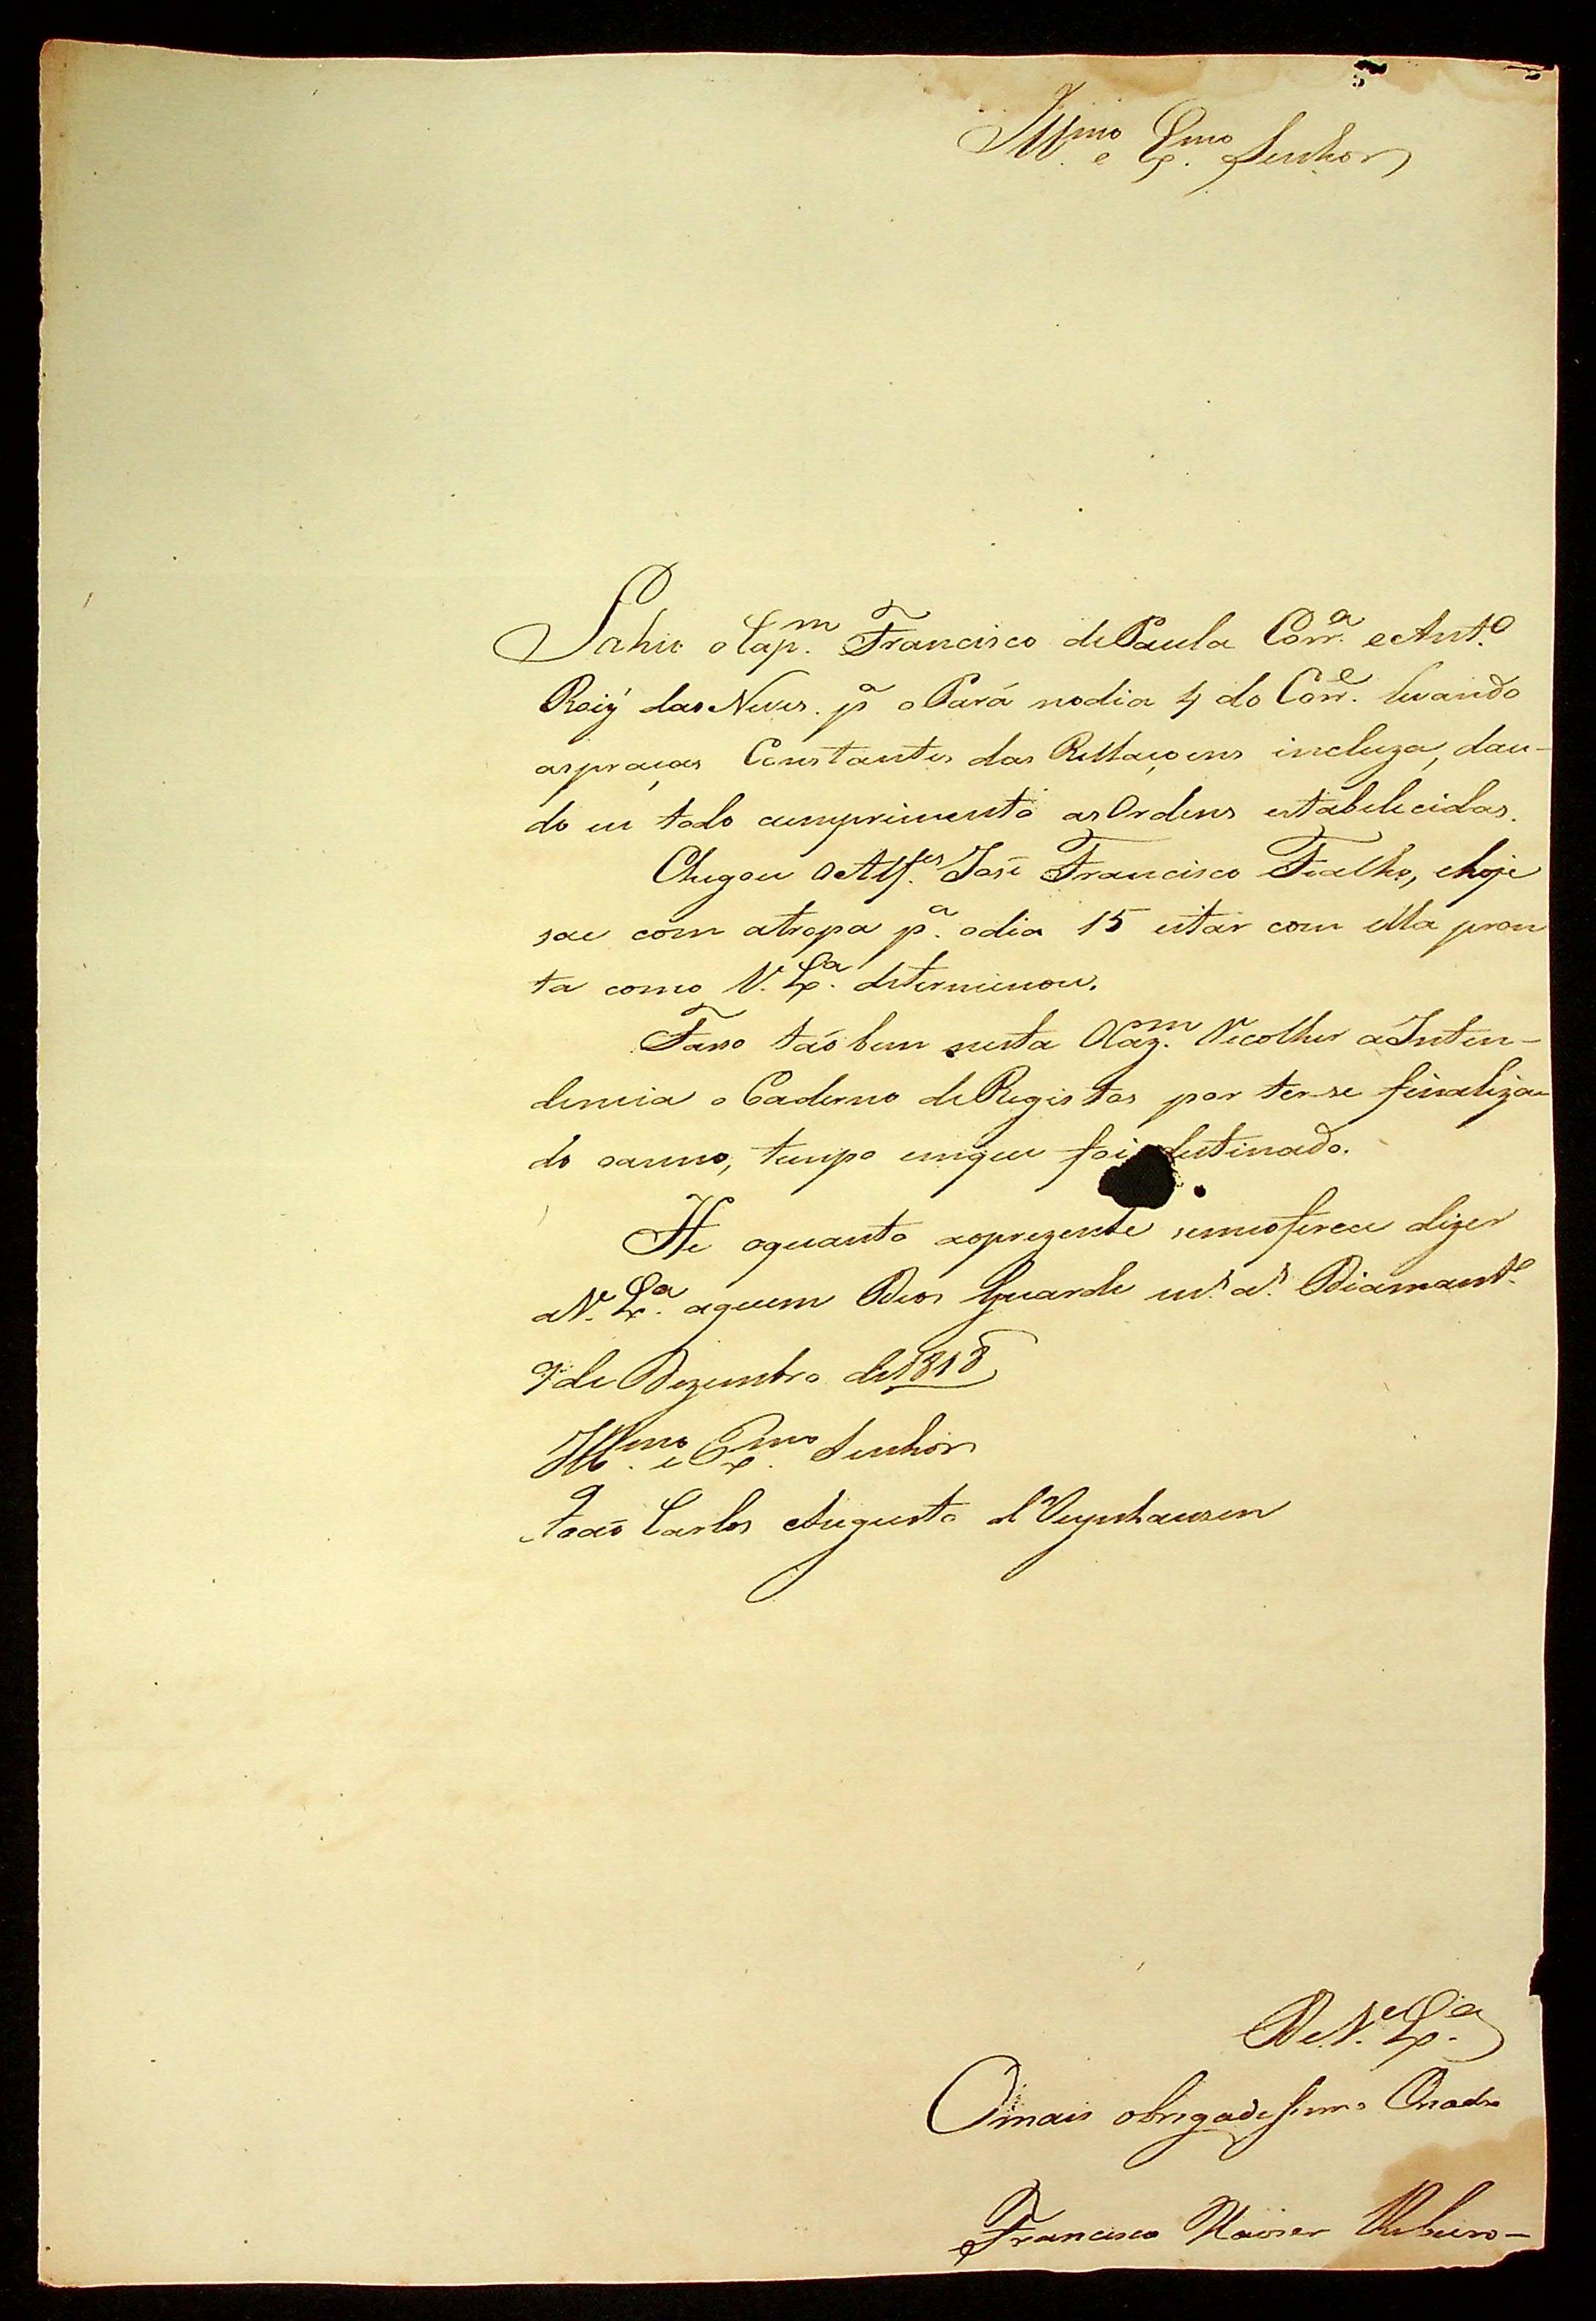 Ill.mo e Ex.mo Senhor
Sahio o Cap.m Francisco de Paula Corr.a e Ant.o
Roiz' das Neves p.a o Pará no dia 4 do Corr.e levando
as praças Constantes das Rellaçoens incluza, dan-
do eu todo cumprimento as Ordens estabelecidas.
Chegou o Alf.es José Francisco Fialho, e hoje
sae com a tropa p.a o dia 15 estar com ella pron
ta como V. Ex.a determinou.
Faso taõ bem nesta Recolher a Inten-
dencia o Caderno de Registos por ter-se finaliza
do o anno, tempo em que foi destinado.
He o quanto ao prezente se me oferece dizer
a V. Ex.a a quem Deos Guarde m.s a.s Diamant.o
9 de Dezembro de 1818
Ill.mo e Ex.mo Senhor
Joaõ Carlos Augusto d'Oeynhausen
De V. Ex.a
O mais obrigadissimo Criado
Francisco Xavier Ribeiro